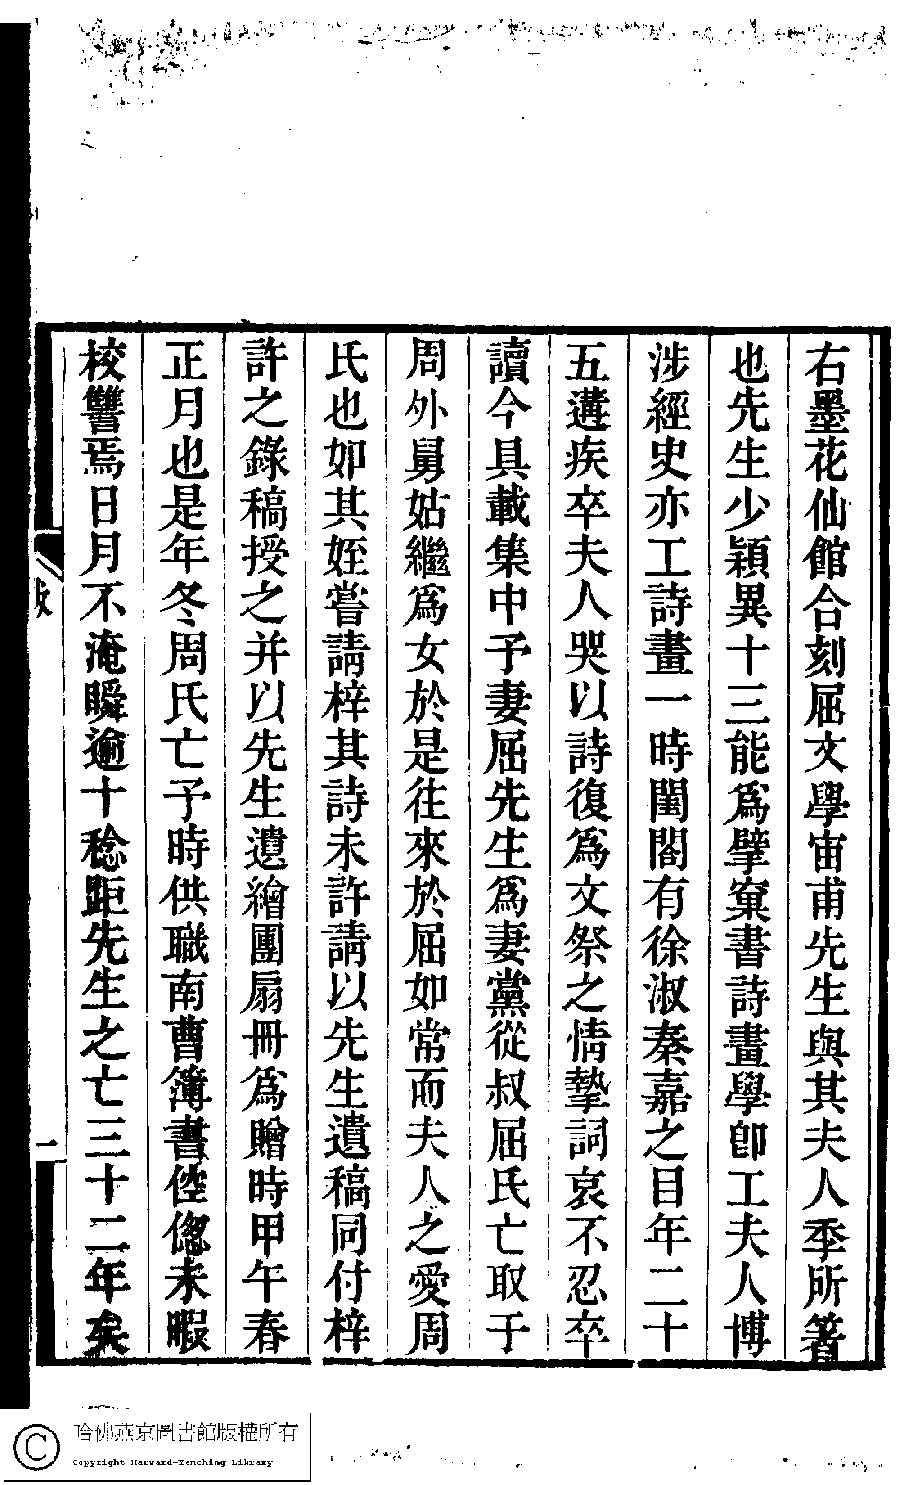 右墨花仙館合刻屈文學宙甫先生與其夫人季所箸
也先生少穎異十三能爲擘窠書詩畫學卽工夫人博
涉經史亦工詩畫一時閨閤有徐淑秦嘉之目年二十
五遘疾卒夫人哭以詩復爲文祭之情摯詞哀不忍卒
讀今具載集中予妻屈先生爲妻黨從叔屈氏亡取于
周外舅姑繼爲女於是往來於屈如常而夫人之愛周
氏也如其姪嘗請梓其詩未許請以先生遺稿同付梓
許之錄稿授之并以先生遺繪團扇冊爲贈時甲午春
正月也是年冬周氏亡予時供職南曹簿書倥傯未暇
校讐焉日月不淹瞬逾十稔距先生之亡三十二年矣
一
哈佛燕京圖書館版權所有
Copyright Harvard-Yenching Library